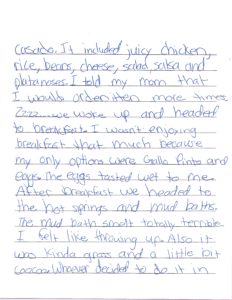 casado. It included juicy chicken,
rice, beans, cheese, salad, salsa and
platanoses. I told my mom that
I would order it ten more times.
Zzzz... we woke up and headed
to breakfast. I wasn't enjoying
breakfast that much because
my only options were Gallo Pinto and
eggs. The eggs tasted wet to me.
After breakfast we headed to
the hot springs and mud baths.
The mud bath smelt totally terrible.
I felt like throwing up. Also it
was kinda gross and a little bit
Whoever decided to do it in